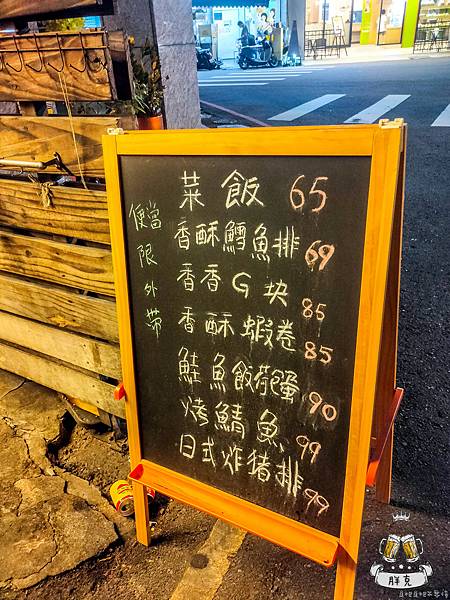 便當限外帶
菜飯 65
香酥鱈魚排 69
香香G块 85
香酥蝦卷 85
鮭魚飯荷包蛋 90
烤鯖魚 99
日式炸豬排 99
胖克